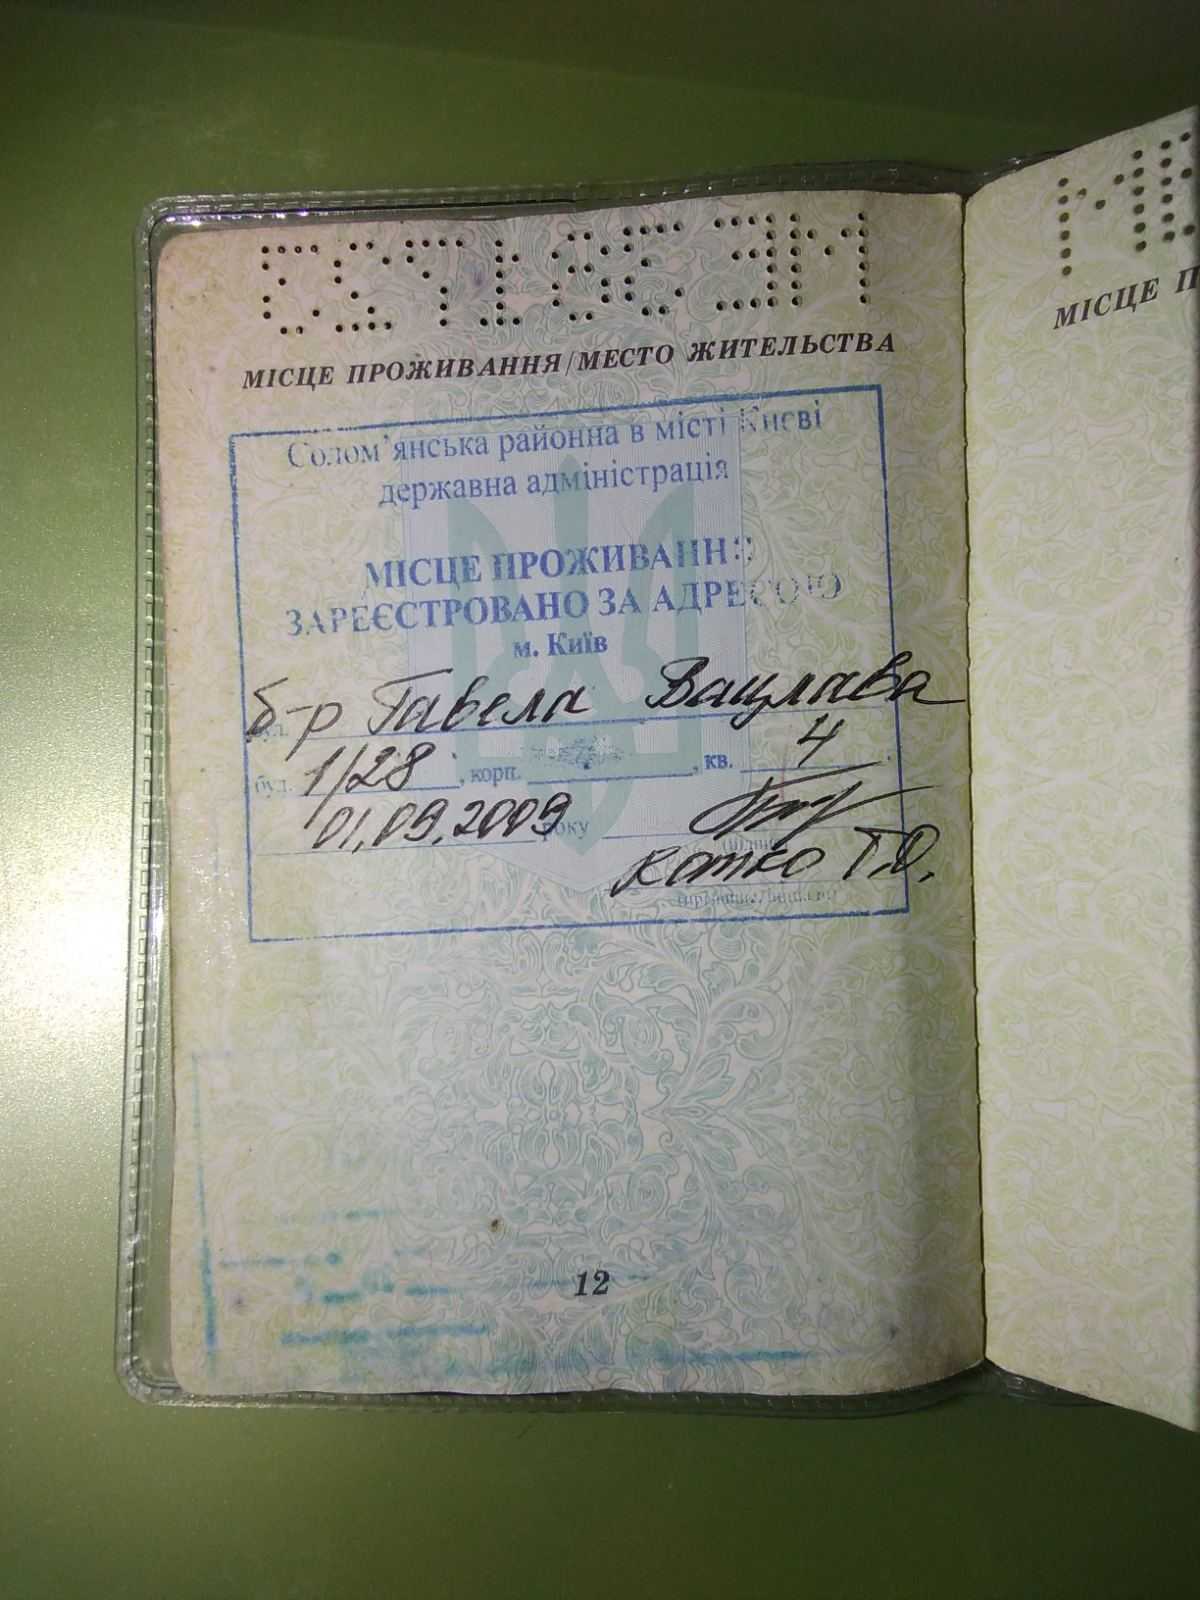 МІСЦЕ ПРОЖИВАННЯ/МЕСТО ЖИТЕЛЬСТВА
МІСЦЕ П
Солом'янська районна в місті Києві
державна адміністрація
МІСЦЕ ПРОЖИВАННЯ
ЗАРЕЄСТРОВАНО ЗА АДРЕСОЮ
м. Київ
б-р Гавела Вацлава
буд. 1/28, корп. , кв. 4
01.09.2009 року
Т.О.
12